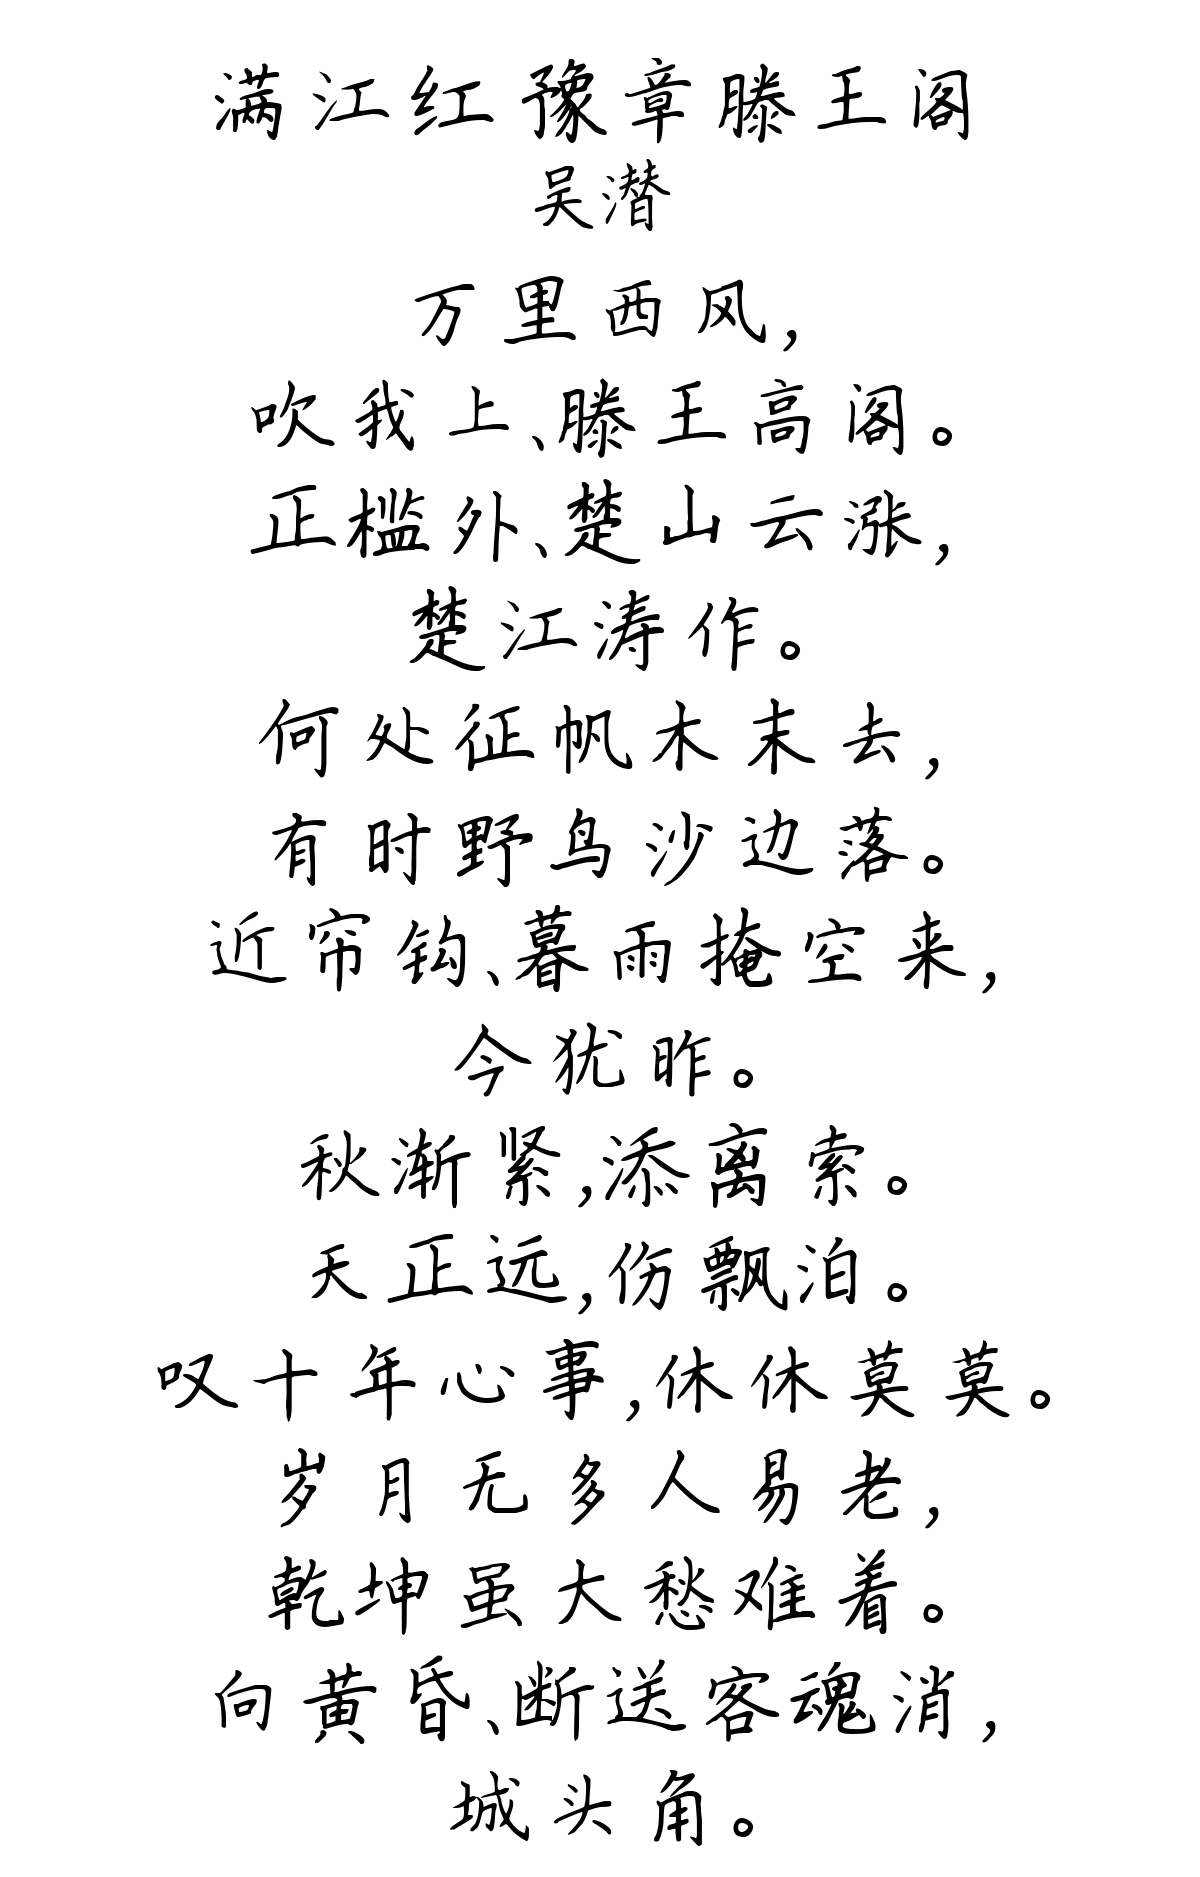 满江红豫章滕王阁
吴潜
万里西风，
吹我上、滕王高阁。
正槛外、楚山云涨，
楚江涛作。
何处征帆木末去，
有时野鸟沙边落。
近帘钩、暮雨掩空来，
今犹昨。
秋渐紧，添离索。
天正远，伤飘泊。
叹十年心事，休休莫莫。
岁月无多人易老，
乾坤虽大愁难着。
向黄昏、断送客魂消，
城头角。